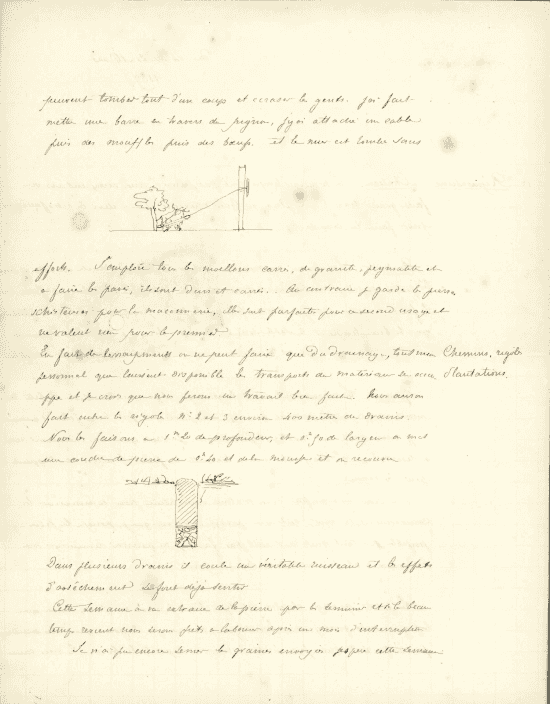 peuvent tomber tout d'un coup et ecraser les gents. J'ai fait
mettre une barre en travers du pignon, j'y ai attaché un cable
puis des mouffles puis des bœufs. et le mur est tombé sans
efforts. J'emploie tous les moellons carres, de granite,
a faire les pavé, ils sont durs et carrés. Au contraire je garde les pierres
schisteuses pour la maconnerie, elles sont parfaites pour ce second usage et
ne valent rien pour le premier
En fait de terrassements on ne peut faire que du drainage, tout mon
Chemins, rigoles
personnel que laissent disponible les transports de materiaux s'en occupe
Plantations.
et je crois que nous ferons un travail bien fait. Nous avons
fait entre les rigoles N° 2 et 3 environ 400 mètres de drains.
Nous les faisons a 1m20 de profondeur, et 0m50 de largeur on met
une couche de pierre de 0m20. et de la mousse et on recouvre
Dans plusieurs drains il coule un véritable ruisseau et les effets
d'assèchement se font déjà sentir
Cette semaine on va extraire de la pierre pour les terminer et si le beau
temps revient nous serons prêts a labourer après un mois d'interruption
Je n'ai pu encore semer les graines j'espère cette semaine